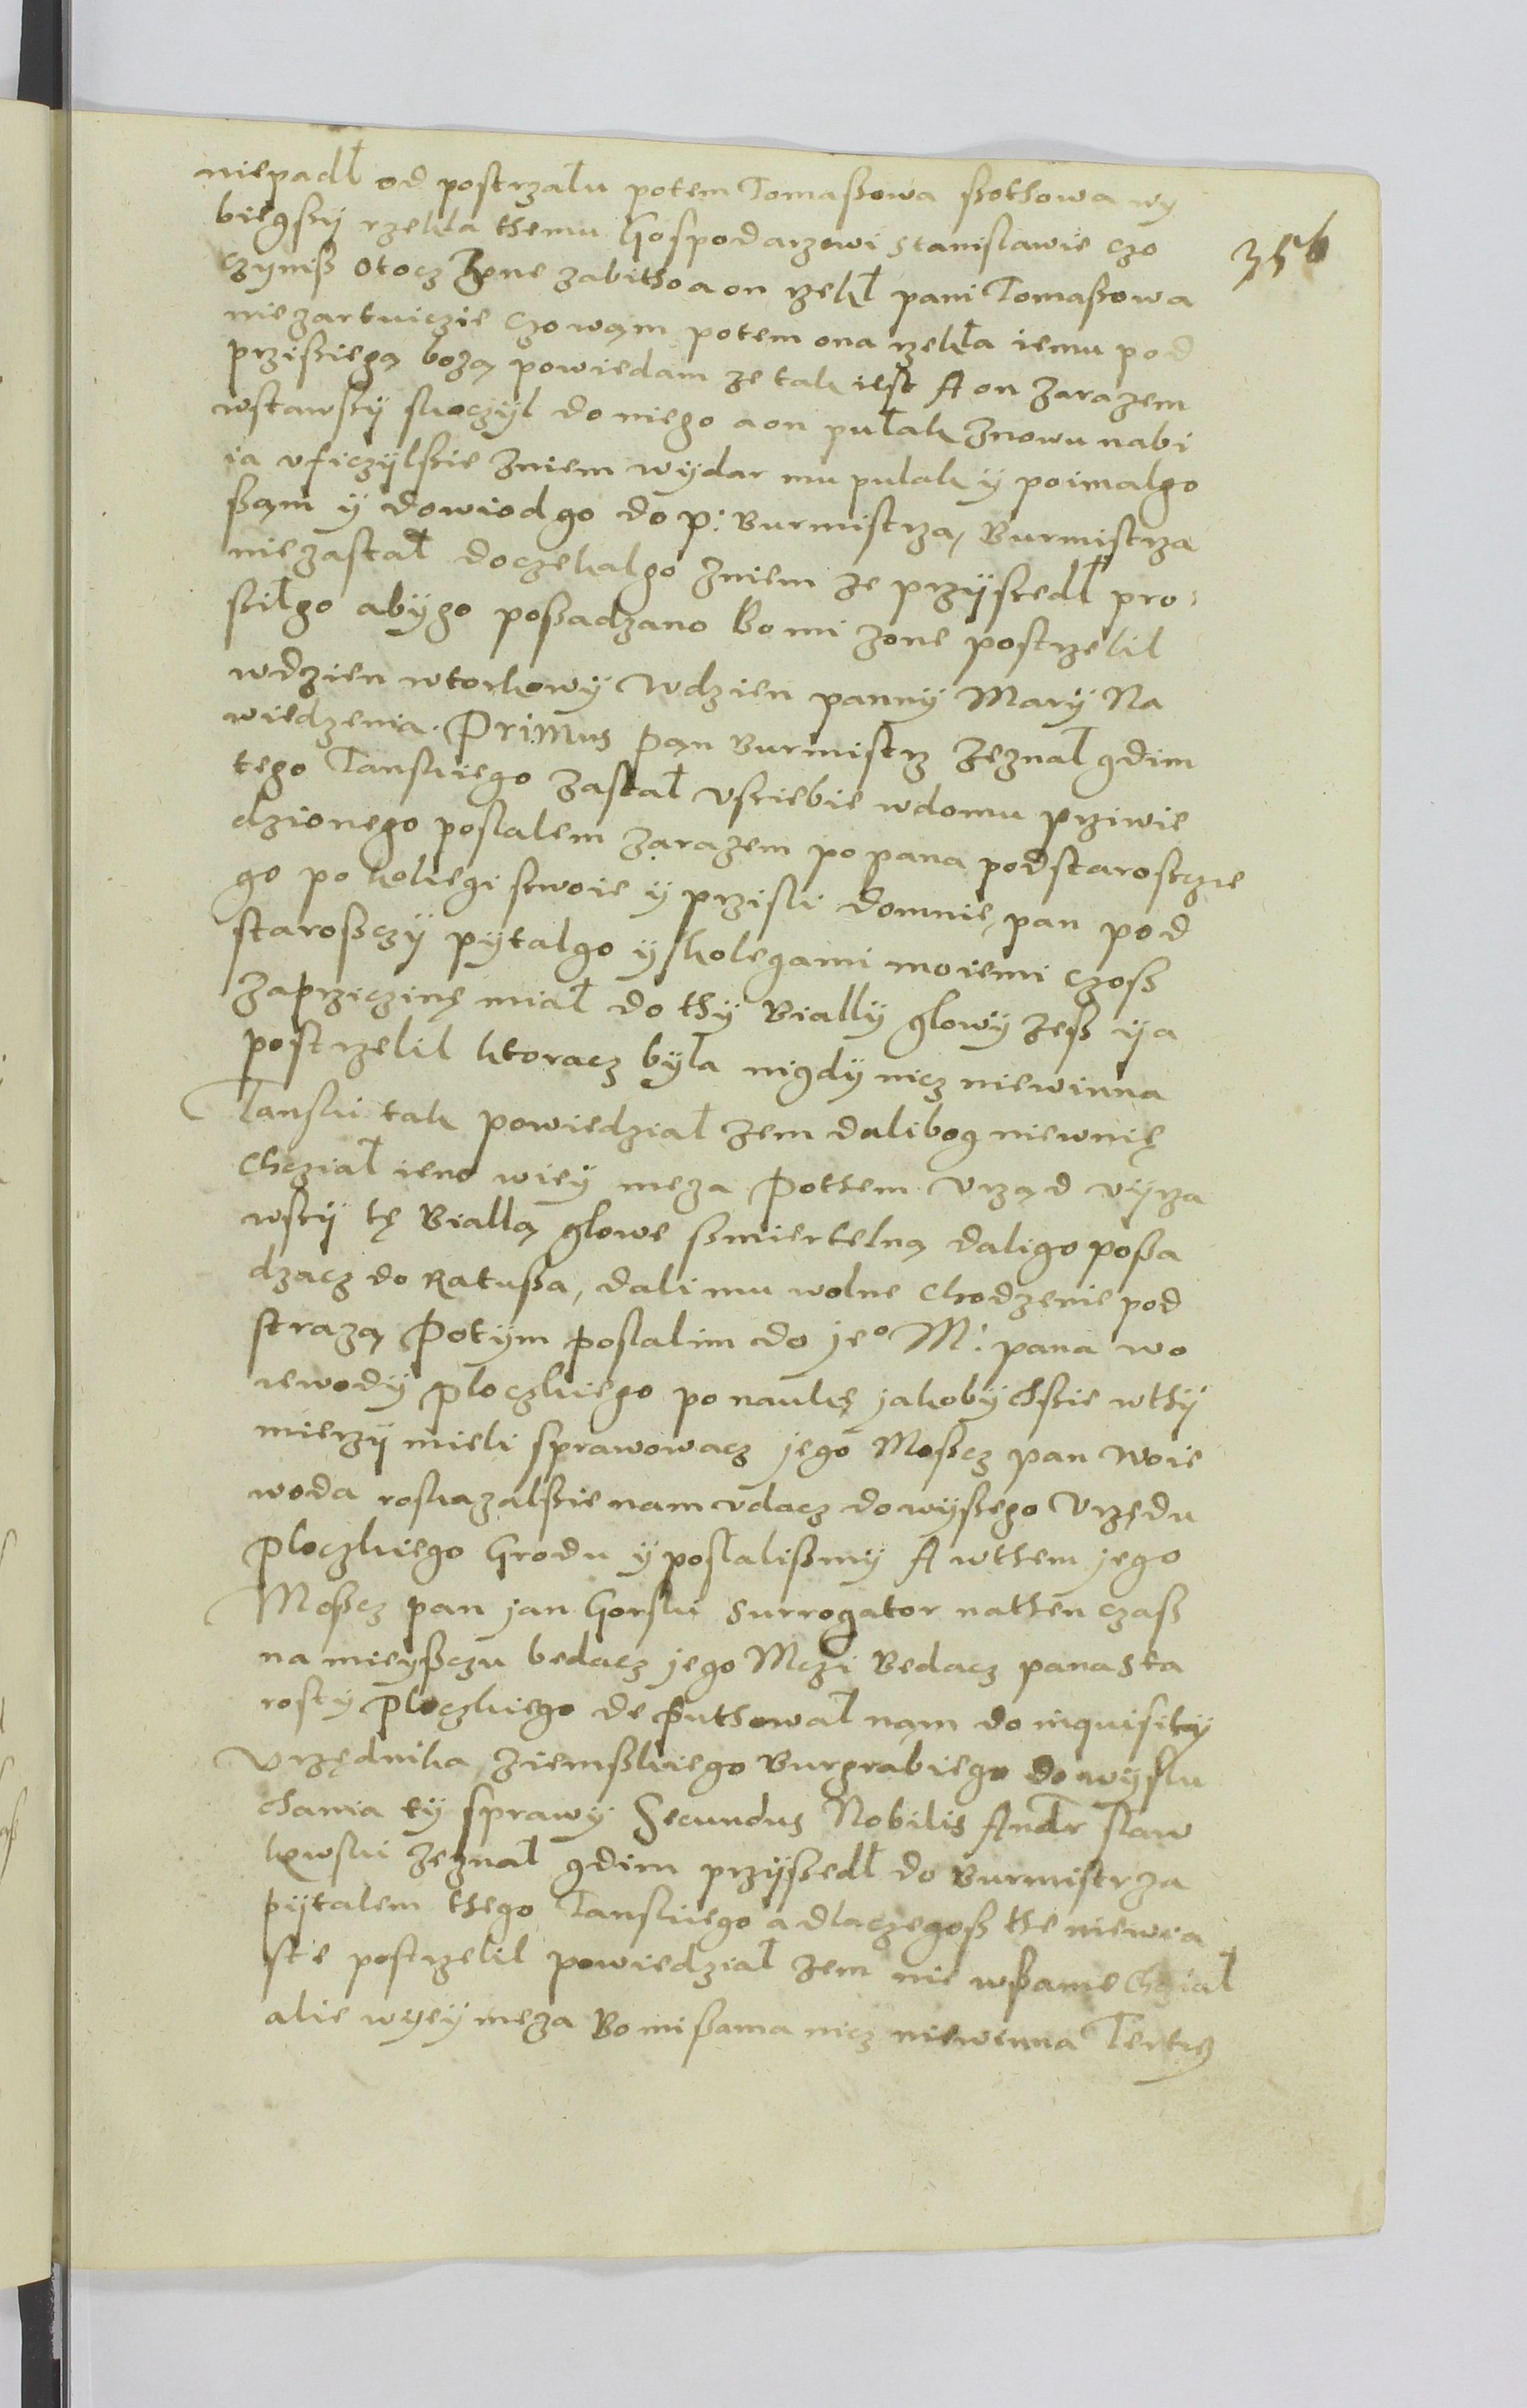 niepadł od postrzału potem Tomaßowa ßothowa wy
biegßÿ rzekła themu Gospodarzowi Stanislawie czo
356
czynisß otocz Żone zabitho a on rzekł pani Tomaßowa
niezartuiczie czowąm potem ona rzekła iemu pod
przisiegą bozą powiedam ze tak iest A on zarazem
wstawßÿ skoczÿl do niego a on pułak znowu nabi
ia uficzÿlßie zniem wÿdar mu pulak ÿ poimalgo
ßąm ÿ dowiod go do p: Burmistrza, Burmistrza
niezastał doczekalgo zniem ze przÿßedł pro
siłgo abÿgo poßadzano bo mi zone postrzelil
wdzien wtorkowÿ wdzien pannÿ Marÿ Na
wiedzenia. Primus Pąn Burmistrz zeznał gdim
tego Tanskiego zastał vsiebie wdomu prziwie
dzionego poslalem zarazem po pana podstarosczie
go po kolegi swoie ÿ prziśli domnie, pan pod
staroßczÿ pÿtalgo ÿ skolegami moiemi czoß
zaprziczinę miał do thÿ Biallÿ głowÿ zeß iją
postrzelil ktoracz bÿła nigdÿ nicz niewinna
Tanski tak powiedział zem dalibog niewnię
chcział ieno wieÿ meza Pothem vrząd vÿrza
wßÿ tę Biallą głowe ßmiertelną daligo poßa
dzacz do Ratußa, dali mu wolne chodzenie pod
strazą Potÿm poslalim do jeº M: pana wo
iewodÿ płoczkiego po naukę jakobÿchsie wthÿ
mierzÿ mieli sprawowacz jego Moßcz pan woie
woda roskazalßie nam vdacz do wÿßego Vrzędu
płoczkiego Grodu ÿ poslalißmÿ A wthem jego
Moßcz pan jan Gorski Surrogator nathen czaß
na mieÿßczu bedacz jego Mczi Bedacz pana Sta
rostÿ płoczkiego deputhował nąm do inquisitÿ
Vrzędnika ziemßkiego Burgrabiego do wÿslu
chania tÿ sprawÿ Secundus Nobilis Andr slaw
kowski zeznał gdim przÿßedł do Burmistrza
pÿtalem thego Tanskiego a dlaczegoß the niewia
ste postrzelil powiedział zem nie wßame chział
alie wÿeÿ meza Bo mißama nicz niewinna Tertÿ